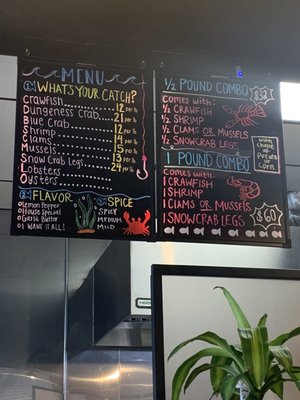 MENU
① WHAT'S YOUR CATCH?
Crawfish 12 per lb
Dungeness Crab
Blue Crab 21 per lb
Shrimp 12 per lb
Clams 14 per lb
Mussels
Snow Crab Legs
Lobsters 24 per lb
Oysters
② FLAVOR
Lemon Pepper
House Special
Garlic Butter
I WANT IT ALL!
③ SPICE
SPICY
MEDIUM
MILD
1/2 POUND COMBO
comes with:
1/2 CRAWFISH
1/2 SHRIMP
1/2 CLAMS OR MUSSELS
1/2 SNOWCRAB LEGS
when
choose a
OG
Potato
or corn
1 POUND COMBO
comes with:
1 CRAWFISH
1 SHRIMP
1 CLAMS OR MUSSELS
1 SNOWCRAB LEGS
$60